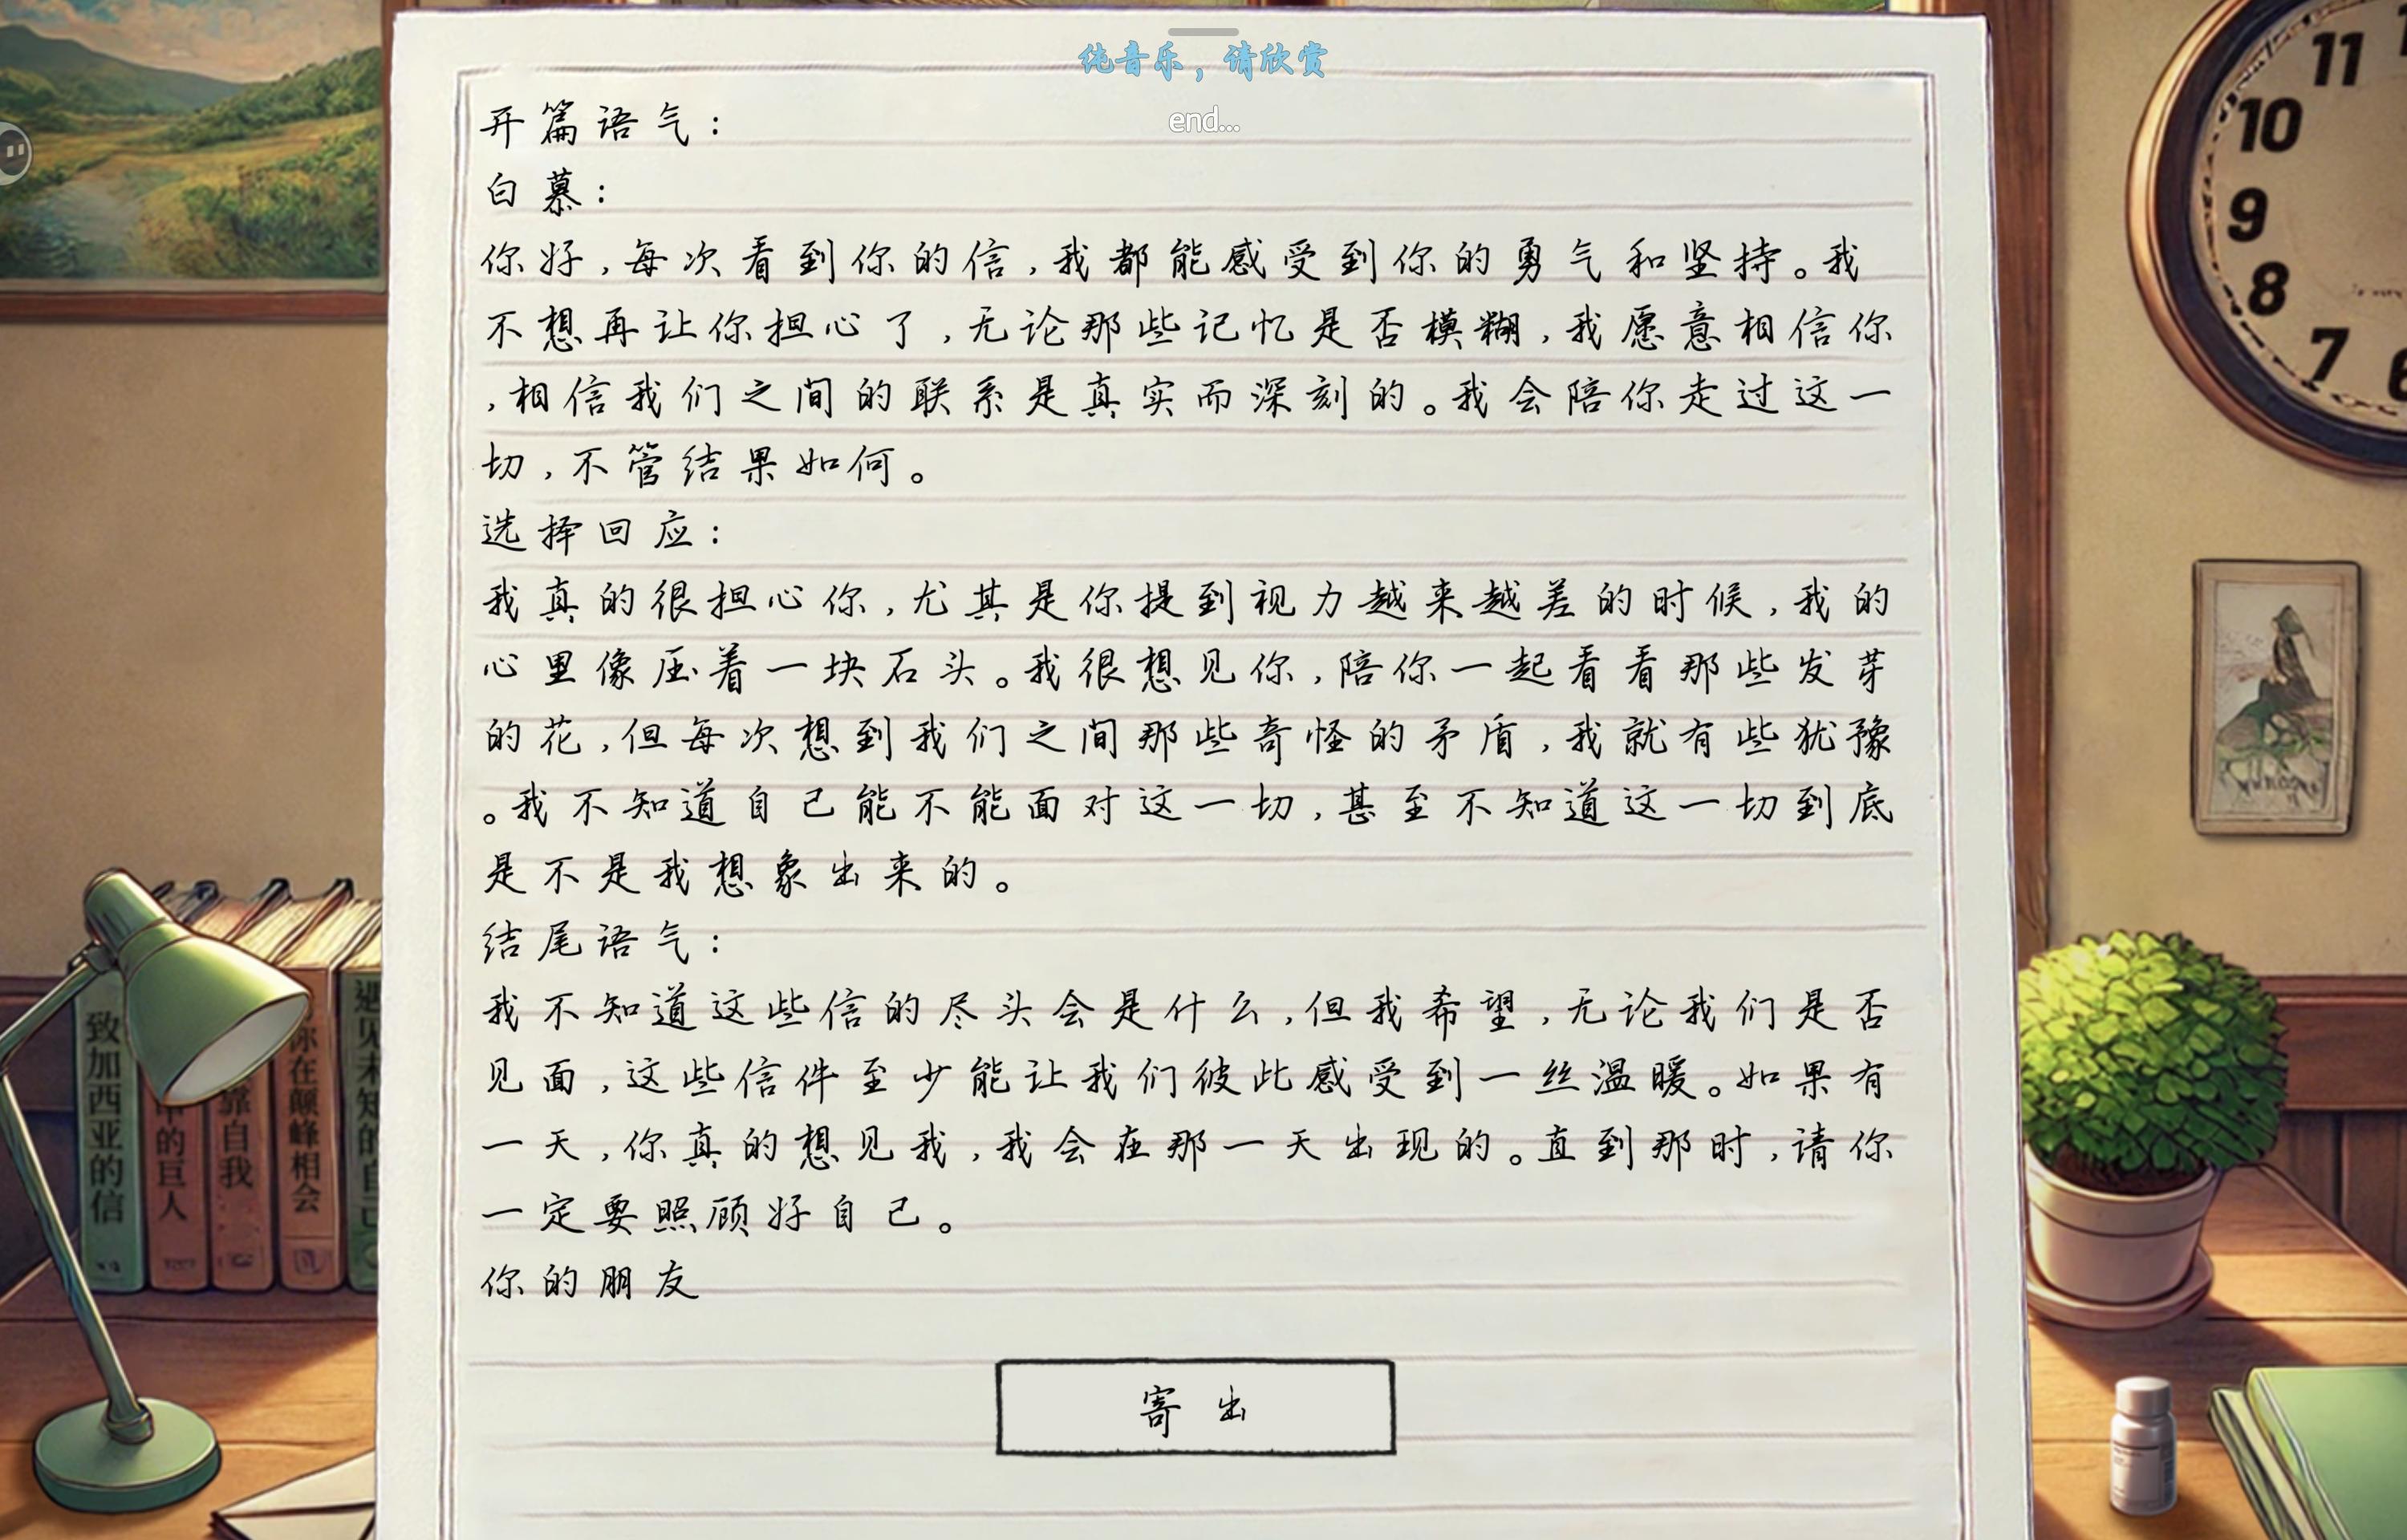 纯音乐，请欣赏
end...
开篇语气：
白慕：
你好，每次看到你的信，我都能感受到你的勇气和坚持。我
不想再让你担心了，无论那些记忆是否模糊，我愿意相信你
，相信我们之间的联系是真实而深刻的。我会陪你走过这一
切，不管结果如何。
选择回应：
我真的很担心你，尤其是你提到视力越来越差的时候，我的
心里像压着一块石头。我很想见你，陪你一起看看那些发芽
的花，但每次想到我们之间那些奇怪的矛盾，我就有些犹豫
。我不知道自己能不能面对这一切，甚至不知道这一切到底
是不是我想象出来的。
结尾语气：
我不知道这些信的尽头会是什么，但我希望，无论我们是否
见面，这些信件至少能让我们彼此感受到一丝温暖。如果有
一天，你真的想见我，我会在那一天出现的。直到那时，请你
一定要照顾好自己。
你的朋友
寄出
11
10
9
8
7
6
致加西亚的信
的巨人
靠自我
你在颠峰相会
遇见未知的自己